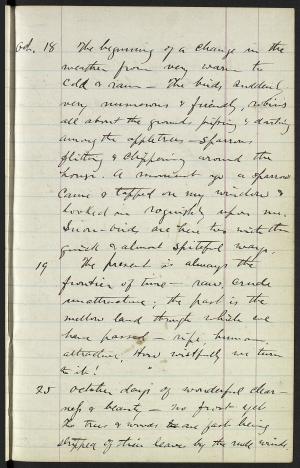 Oct. 18 The beginning of a change in the
weather from very warm to
cold & rain — The birds suddenly
very numerous & friendly, robins
all about the ground, piping & darting
among the appletrees — Sparrows
flitting & chippering around the
house. A moment ago a sparrow
came & tapped on my window &
looked in roguishly upon me.
Snow-birds are here too with their
quick & almost spiteful ways.
19 The present is always the
frontier of time — raw, crude
unattractive; the past is the
mellow land through which we
have passed — ripe, human,
attractive. How wistfully we turn
to it!
25 October days of wonderful clear-
ness & beauty — no frost yet
the trees & woods are fast being
stripped of their leaves by the winds